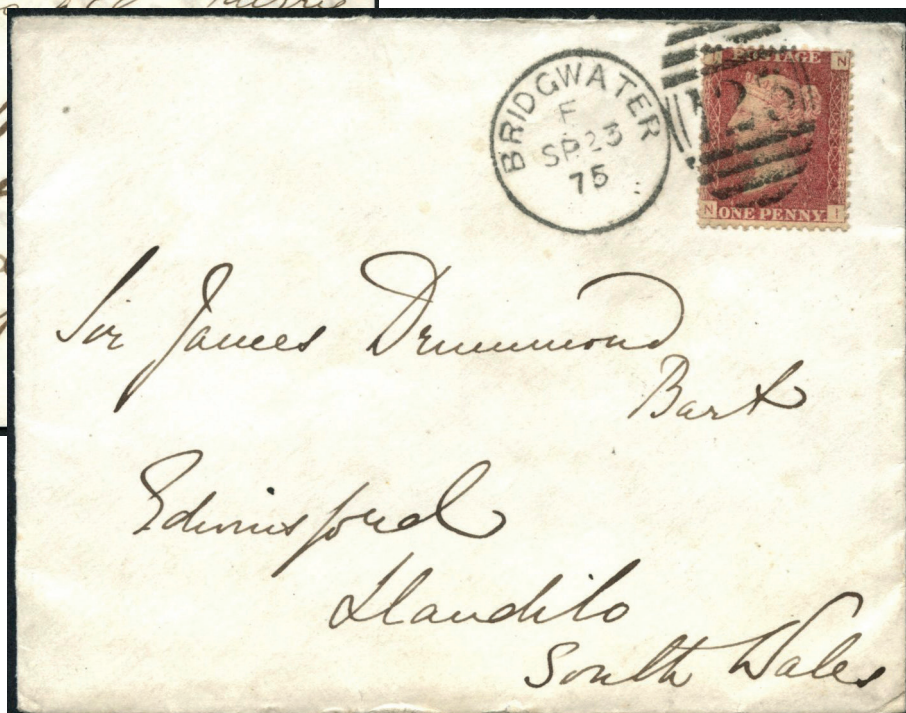 BRIDGWATER
F
SP 23
75
POSTAGE
N
125
N ONE PENNY I
Sir James Drummond
Bart
Edwinsford
Llandilo
South Wales